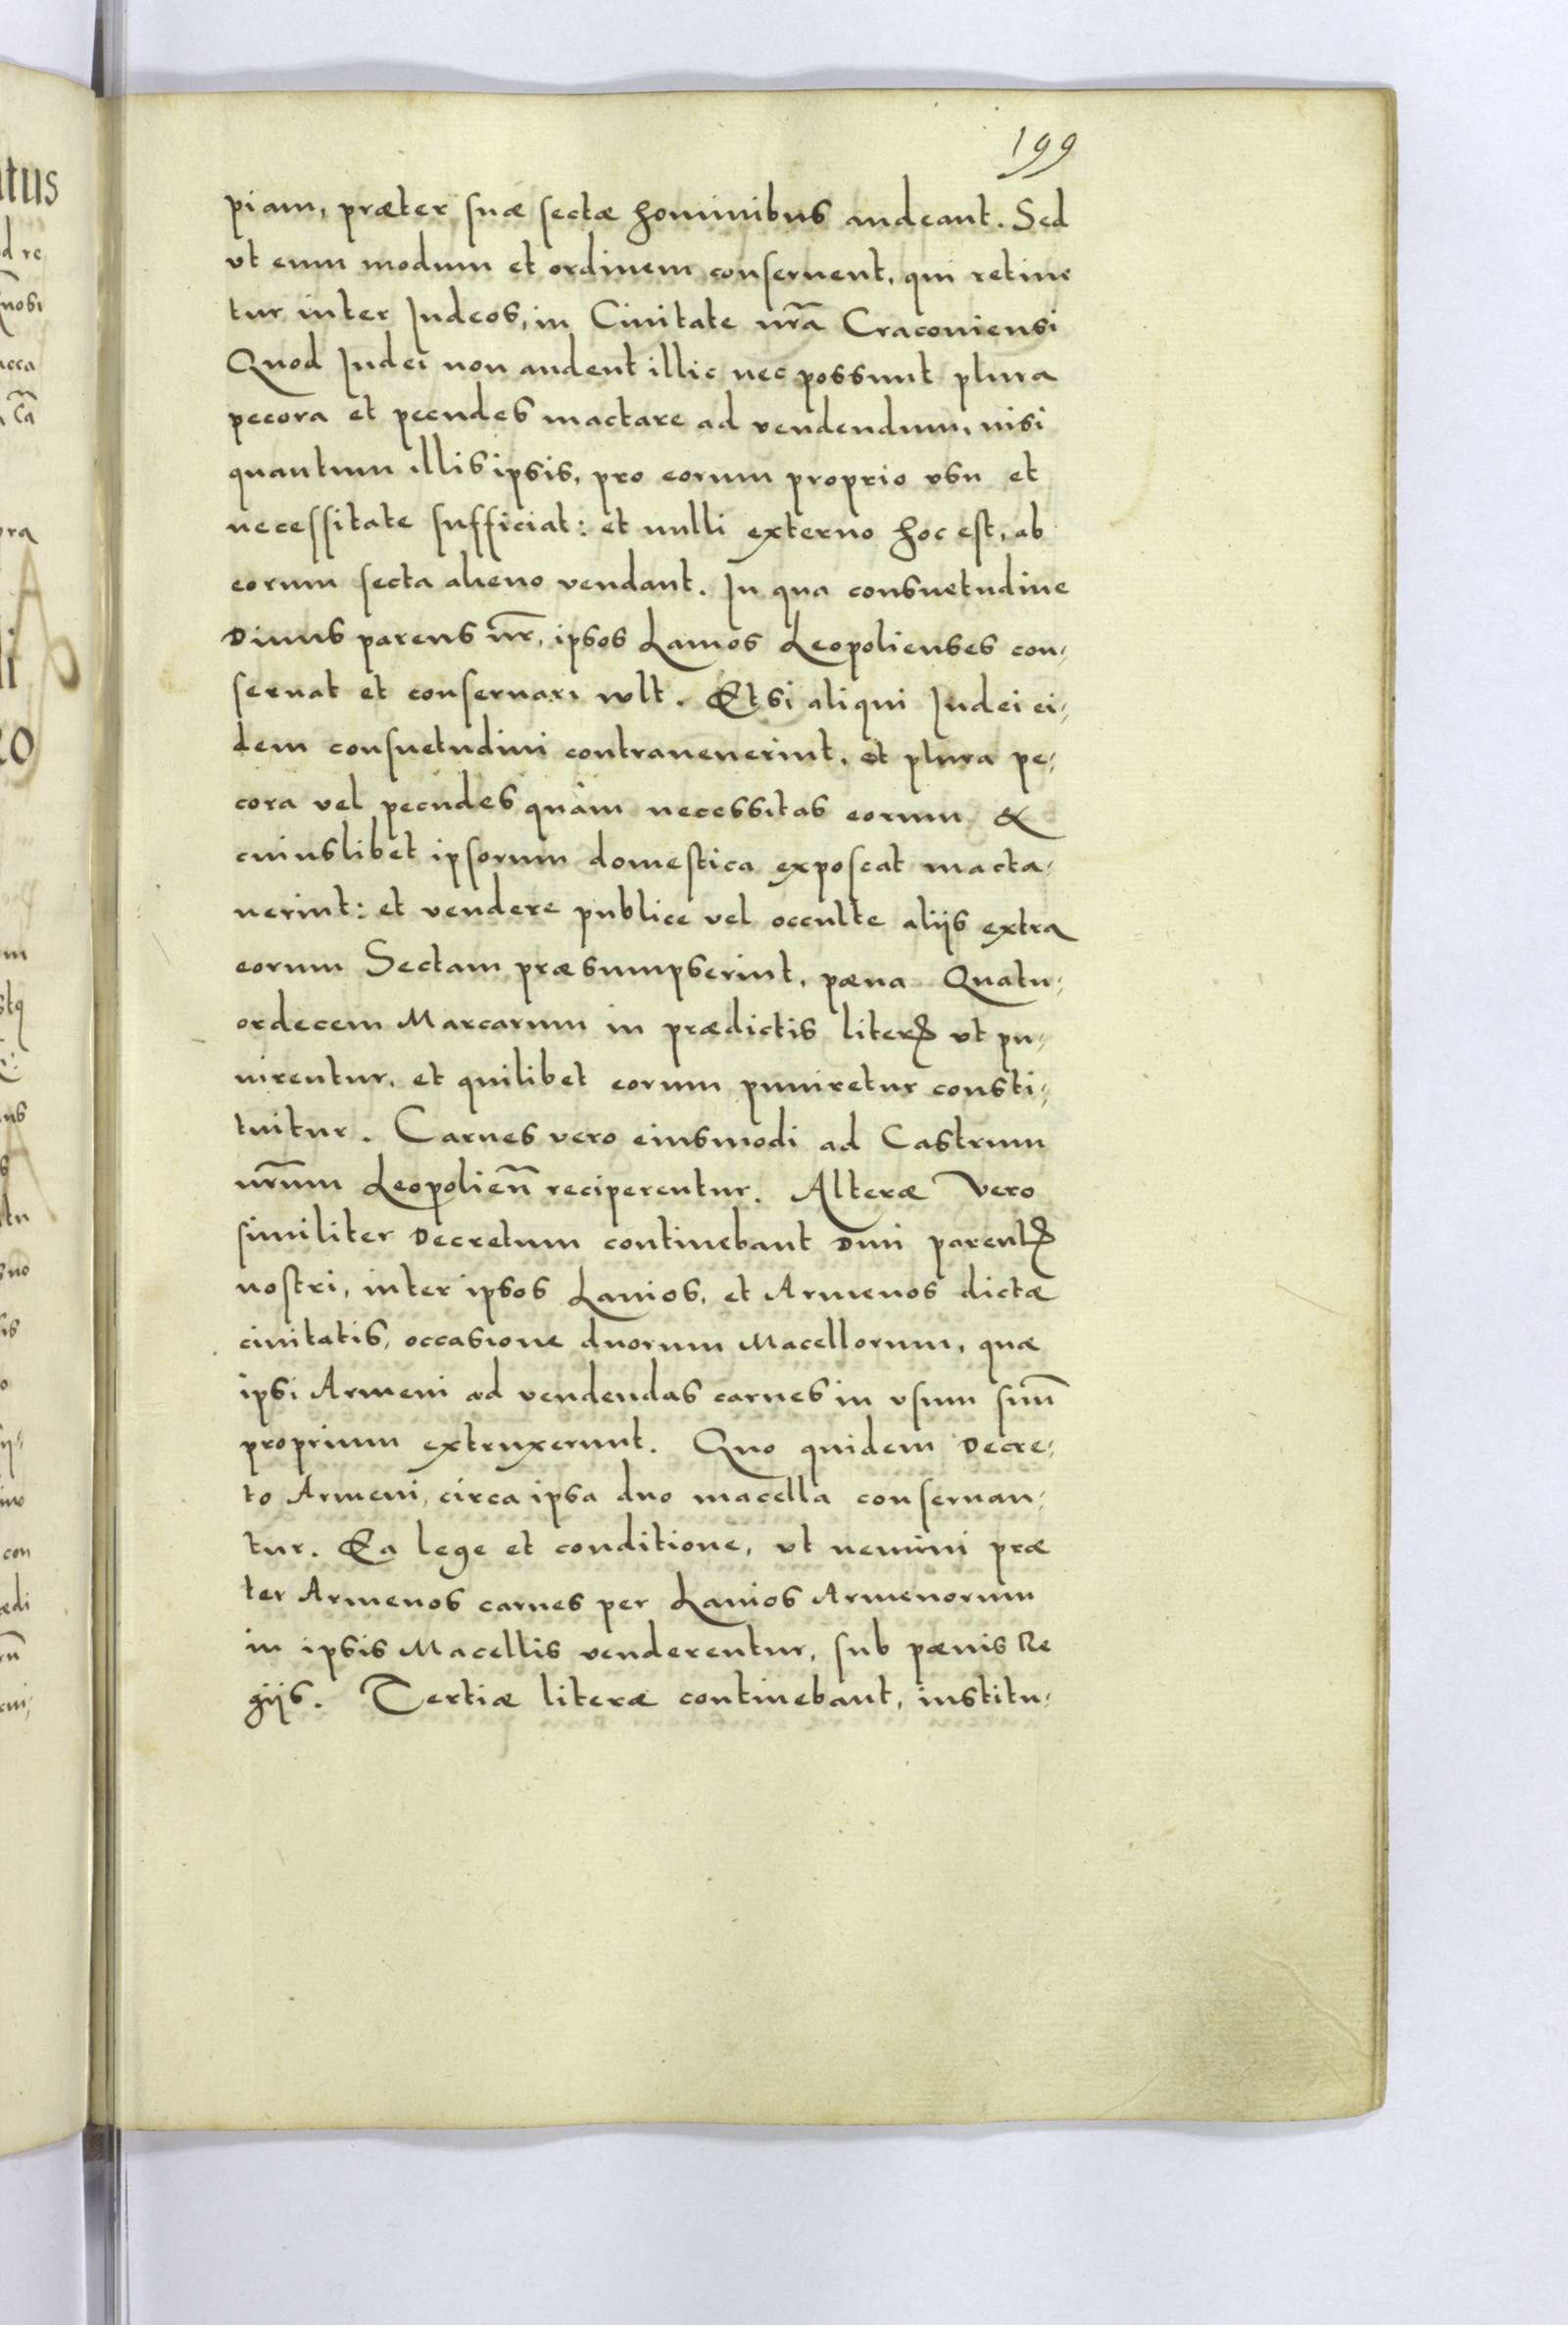 199
piam, præter suæ sectæ hominibus audeant. Sed
vt eum modum et ordinem conseruent, qui retine
tur inter Iudeos, in Ciuitate nr̃a Cracouiensi
Quod Iudei non audent illic nec possunt plura
pecora et pecudes mactare ad vendendum, nisi
quantum illis ipsis, pro eorum proprio vsu et
necessitate sufficiat: et nulli externo hoc est, ab
eorum secta alieno vendant. In qua consuetudine
Diuus parens nr̃, ipsos Lanios Leopolienses con¬
seruat et conseruari wlt. Et si aliqui Iudei ei¬
dem consuetudini contrauenerint, et plura pe¬
cora vel pecudes quàm necessitas eorum &
cuiuslibet ipsorum domestica exposcat macta¬
uerint: et vendere publice vel occulte alijs extra
eorum Sectam præsumpserint, pæna Quatu¬
ordecem Marcarum in prædictis literꝭ vt pu¬
nirentur, et quilibet eorum puniretur consti¬
tuitur. Carnes vero eiusmodi ad Castrum
nr̃um Leopolien̄ reciperentur. Alteræ Vero
similiter Decretum continebant Diui parentꝭ
nostri, inter ipsos Lanios, et Armenos dictæ
ciuitatis, occasione duorum Macellorum, quæ
ipsi Armeni ad vendendas carnes in vsum suũ
proprium extruxerunt. Quo quidem Decre¬
to Armeni, circa ipsa duo macella conseruan¬
tur. Ea lege et conditione, vt nemini præ
ter Armenos carnes per Lanios Armenorum
in ipsis Macellis venderentur, sub pænis Re
gijs. Tertiæ literæ continebant, institu¬